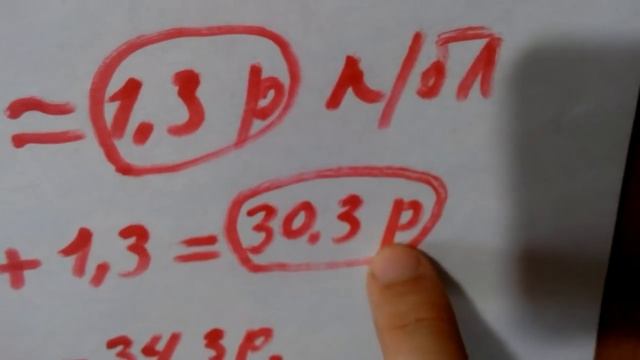 ≈ 1,3 р л/обл
+ 1,3 = 30.3 р
34 3р.